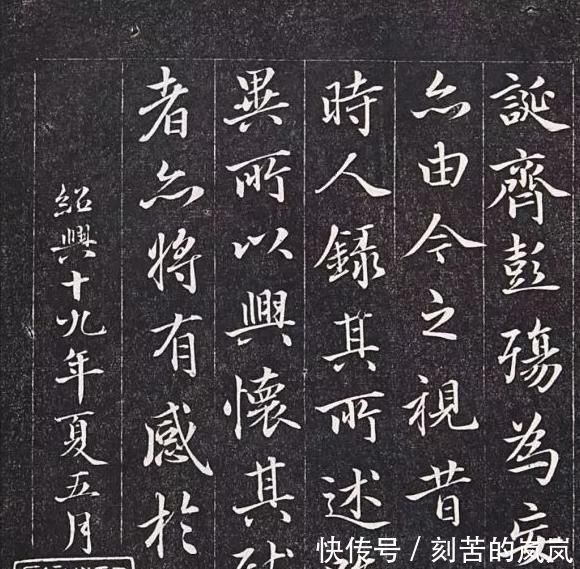 誕齊彭殤為妄
亦由今之視昔
時人錄其所述
異所以興懷其
者亦將有感於
紹興十九年夏五月
快传号 / 刻苦的岚岚